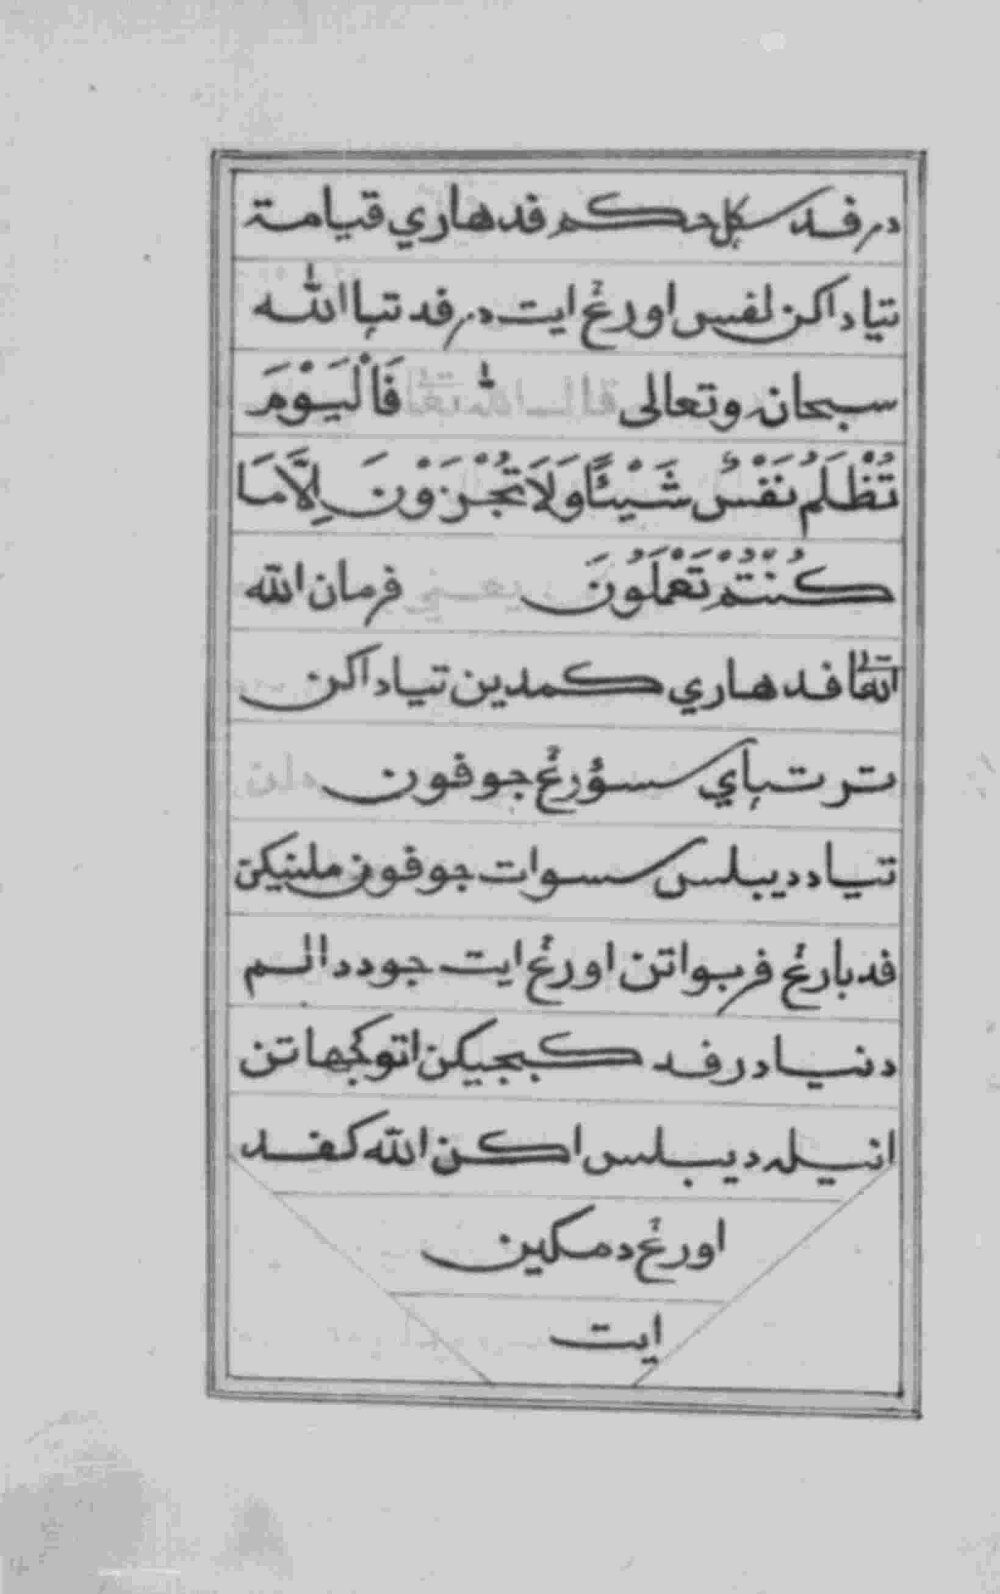 درفد سكل حكم فدهاري قيامة
تياد اكن لفس اورڠ ايت درفد تيا الله
سبحانه وتعالى فَالْيَوْمَ
تُظْلَمُ نَفْسٌ شَيْئًا وَلَا تُجْزَوْنَ إِلَّا مَا
كُنْتُمْ تَعْمَلُونَ فرمان الله
فدهاري كمدين تياد اكن
ترتباي سسؤرڠ جوفون
تياد ديبلس سسوات جوفون ملنيكن
فد بارڠ فربواتن اورڠ ايت جود دالم
دنيا درفد كبجيكن اتو كجهاتن
انيله ديبلس اكن الله كفد
اورڠ دمكين
ايت